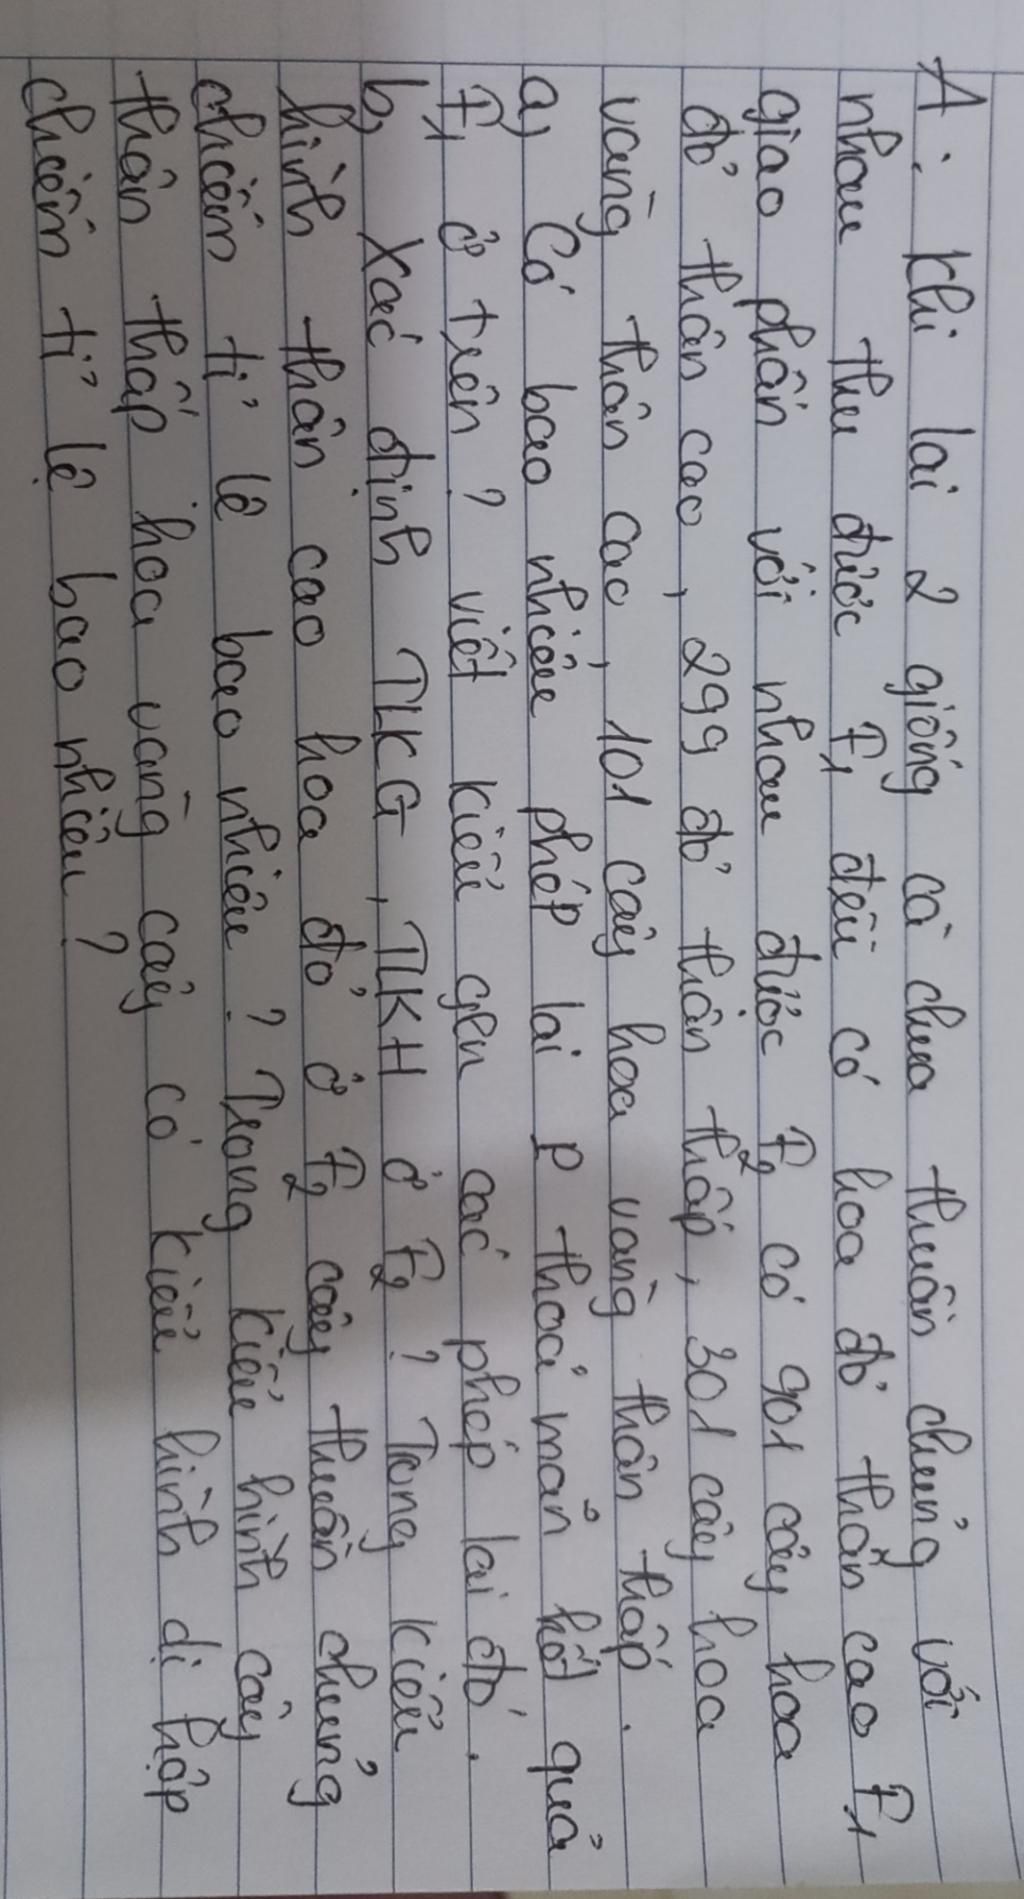 A: Khi lai 2 giống cà chua thuần chủng với
nhau thu được F1 đều có hoa đỏ thân cao F1
giao phấn với nhau được F2 có 901 cây hoa
đỏ thân cao, 299 đỏ thân thấp, 301 cây hoa
vàng thân cao, 101 cây hoa vàng thân thấp.
a, Có bao nhiêu phép lai P thoả mãn kết quả
F1 ở trên? viết kiểu gen các phép lai đó.
b, Xác định TLKG, TLKH ở F2? Trong kiểu
hình thân cao hoa đỏ ở F2 cây thuần chủng
chiếm tỉ lệ bao nhiêu? Trong kiểu hình cây
thân thấp hoa vàng cây có kiểu hình dị hợp
chiếm tỉ lệ bao nhiêu?